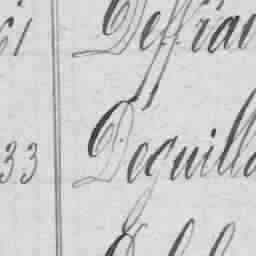 61 Deffrai
33 Deguilla